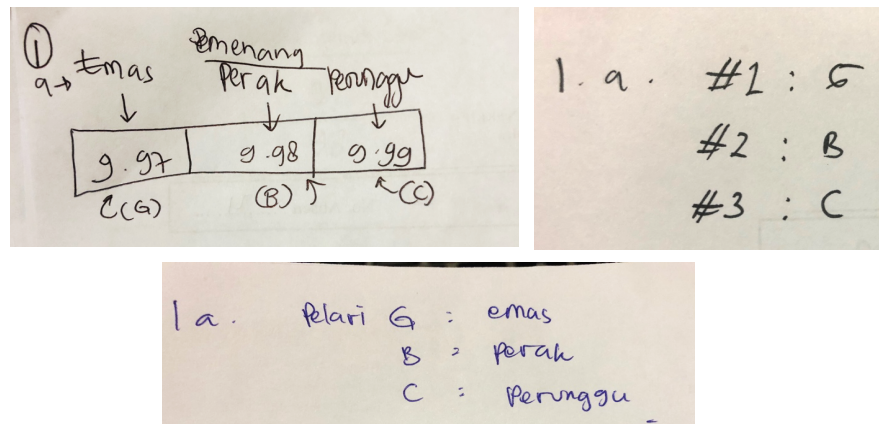 ① Pemenang
a→ Emas Perak Perunggu
9.97 9.98 9.99
(G) (B) (C)
1. a. #1 : G
#2 : B
#3 : C
1a. Pelari G : emas
B : perak
C : Perunggu